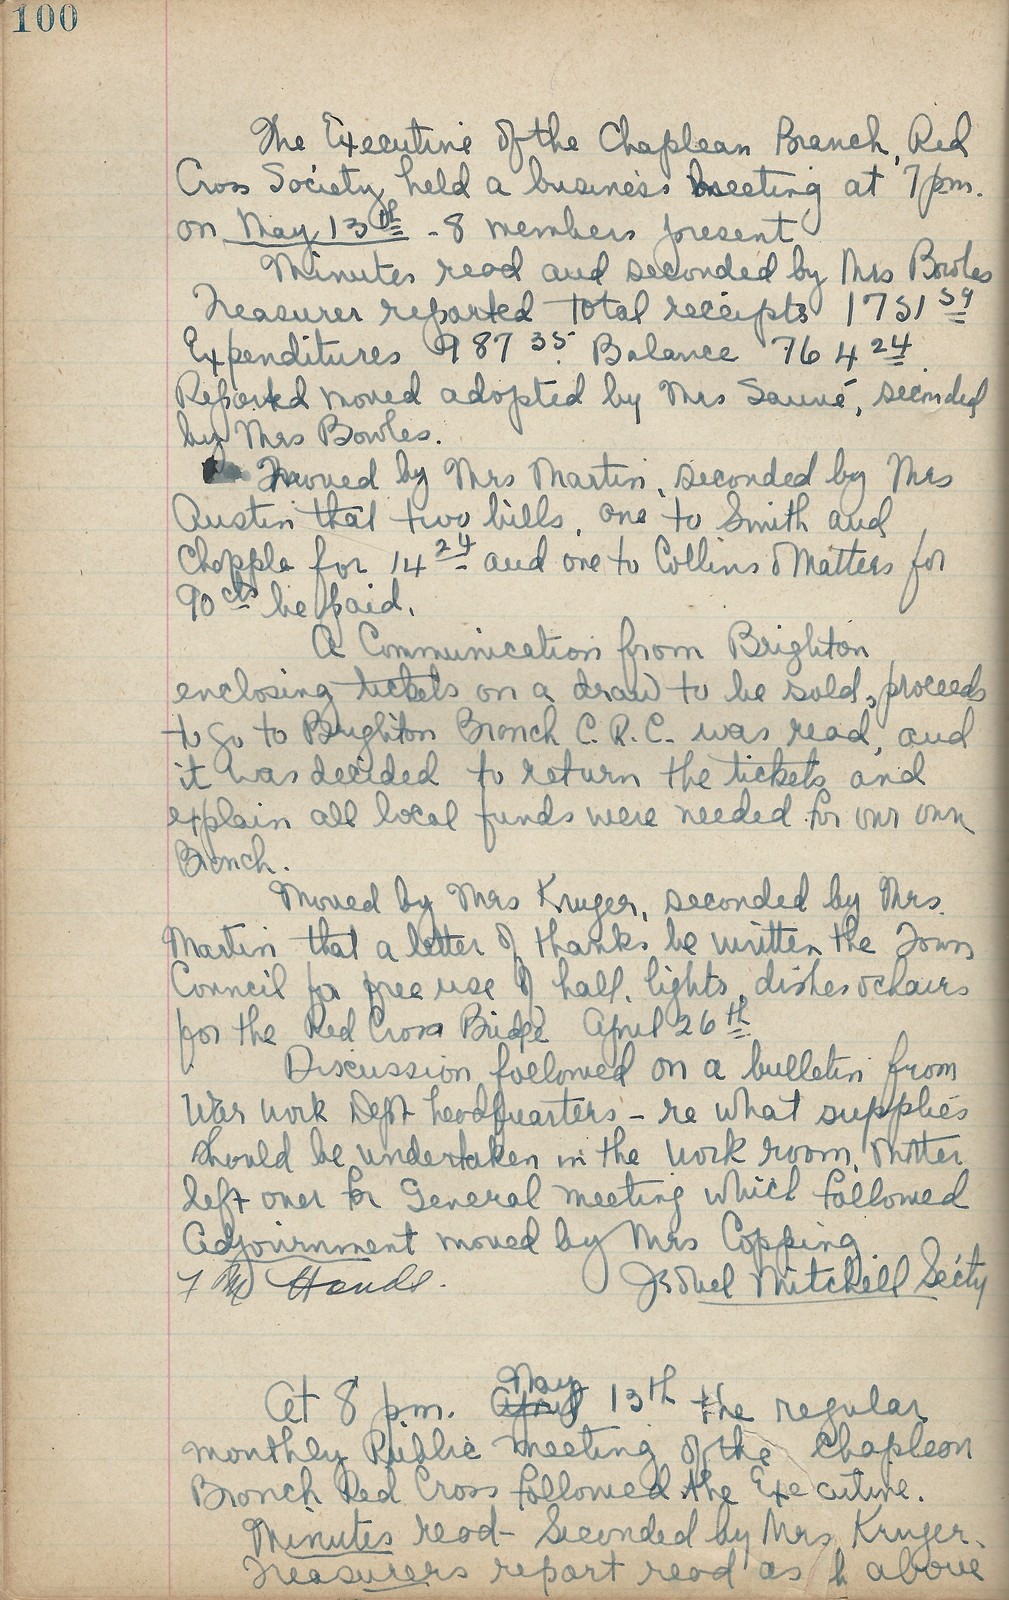 100
The Executive of the Chapleau Branch, Red
Cross Society held a business meeting at 7 pm.
on May 13th - 8 members present
Minutes read and seconded by Mrs Bowles
Treasurer reported total receipts 1751 59
Expenditures 987 35 Balance 764 24
Reported moved adopted by Mrs Sauvé, seconded
by Mrs Bowles.
Moved by Mrs Martin, seconded by Mrs
Austin that two bills, one to Smith and
Chapple for 14 24 and one to Collins & Matters for
90 cts be paid.
A Communication from Brighton
enclosing tickets on a draw to be sold, proceeds
to go to Brighton Branch C.R.C. was read, and
it was decided to return the tickets and
explain all local funds were needed for our own
Branch.
Moved by Mrs Kruger, seconded by Mrs.
Martin that a letter of thanks be written the Town
Council for free use of hall, lights, dishes & chairs
for the Red Cross Bridge April 26th
Discussion followed on a bulletin from
War work Dept headquarters - re what supplies
should be undertaken in the work room. Matter
left over for General meeting which followed
Adjournment moved by Mrs Copping.
Hands. Isobel Mitchell Sec'ty
At 8 p.m. April May 13th the regular
monthly Public meeting of the Chapleau
Branch Red Cross followed the Executive.
Minutes read - Seconded by Mrs Kruger.
Treasurers report read as above